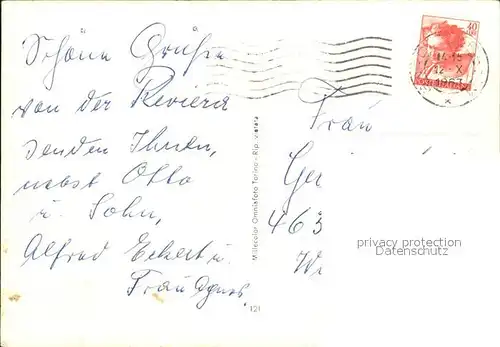 Schöne Grüße
von der Reviera
senden Ihnen,
nebst Otto
u. Sohn,
Alfred Eckert u.
Frau Agnes.
Millecolor Omniafoto Torino - Rip. vietata
121
40
12-X
1967
Frau
Ge
463
privacy protection
Datenschutz
W